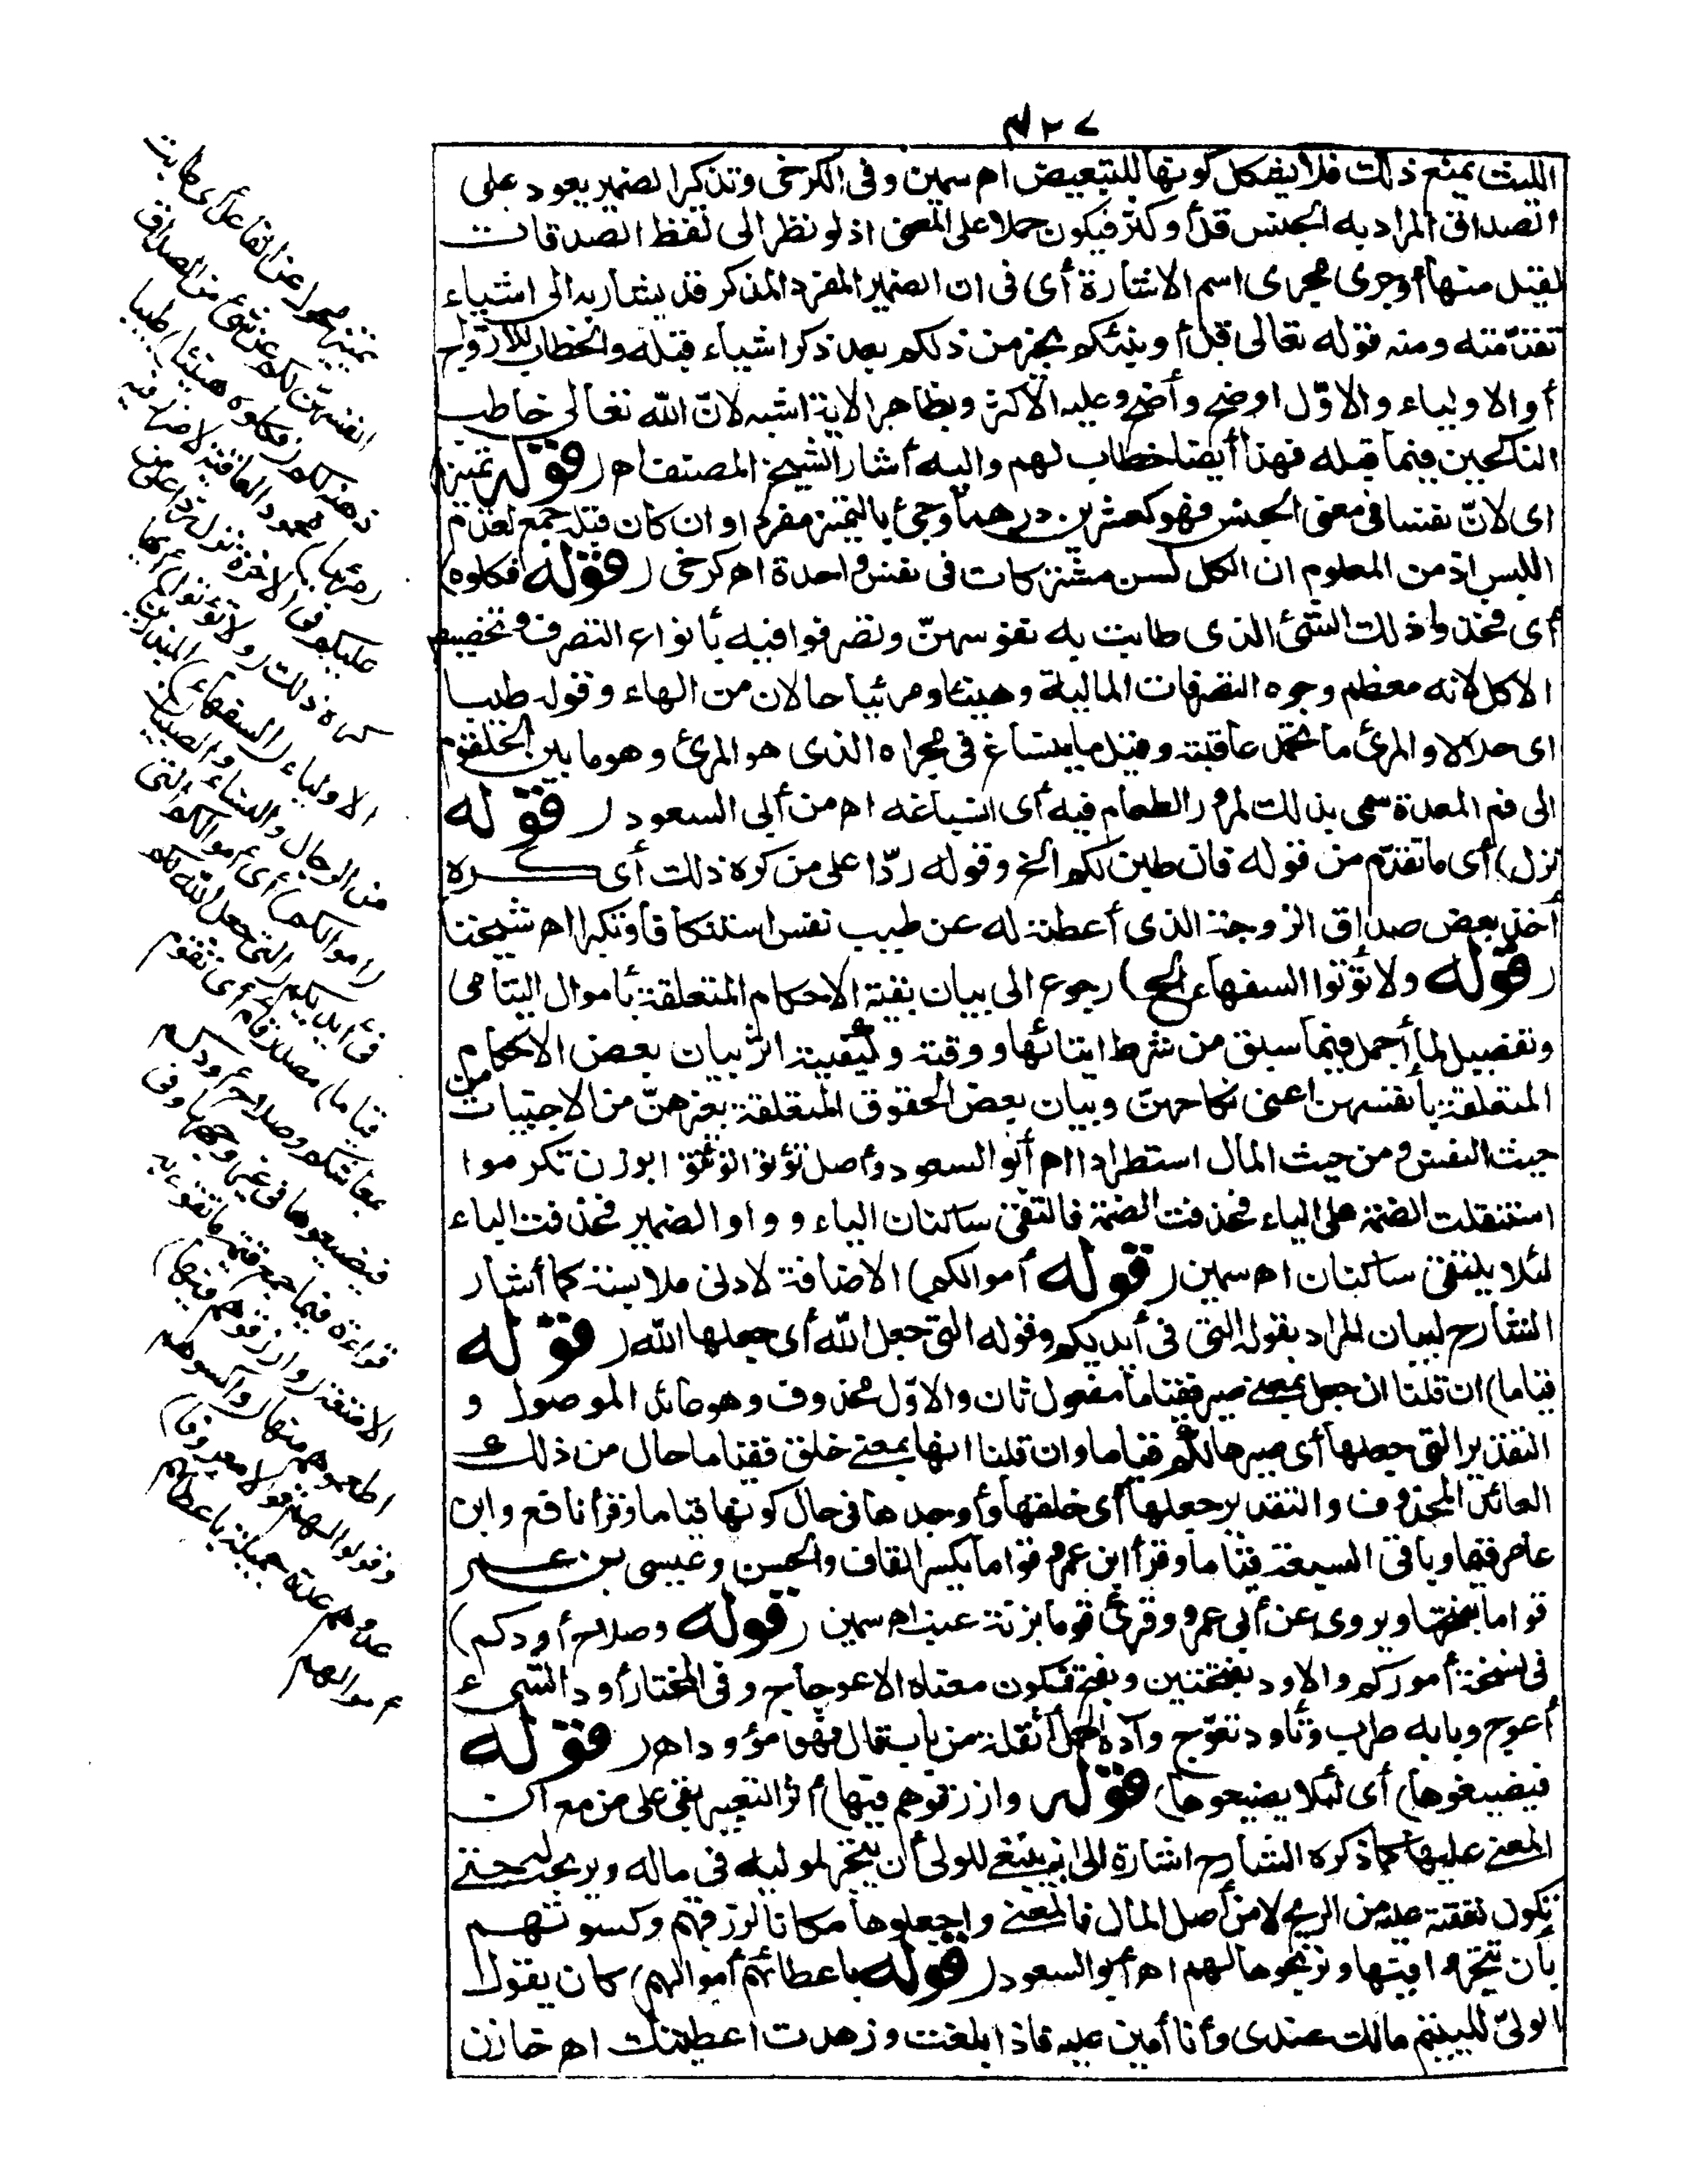 ٤٢٧
الليث يمنع ذلك فلا يشكل كونها للتبعيض اه سمين وفى الكرخى وتذكير الضمير يعود على
الصداق المراد به الجنس قل أو كثر فيكون حملا على المعنى اذ لو نظر الى لفظ الصدقات
لقيل منها أوجرى مجرى اسم الاشارة أى فى ان الضمير المفرد المذكر قد يشار به الى اشياء
تقدّمته ومنه قوله تعالى قل أونبئكم بخير من ذلكم بعد ذكر اشياء قبله والخطاب للأزواج
أوالاولياء والاوّل اوضح وأصح وعليه الاكثر وبظاهر الاية اشبه لانّ الله تعالى خاطب
الناكحين فيما قبله فهذا أيضا خطاب لهم واليه أشار الشيخ المصنف اه (قوله تمييز)
اى لانّ نفسا فى معنى الجنس فهو كعشرين درهما وجئ بالتمييز مفردا وان كان قبله جمع لعدم
اللبس اذ من المعلوم ان الكل لسن مشتركات فى نفس واحدة اه كرخى (قوله فكلوه)
أى فخذوا ذلك الشئ الذى طابت به نفوسهنّ وتصرفوا فيه بأنواع التصرف وتخصيص
الاكل لانه معظم وجوه التصرفات المالية وهنيئا ومريئا حالان من الهاء وقوله طيبا
اى حلالا والمرئ ما تحمد عاقبته وقيل ما ينساغ فى مجراه الذى هو المرئ وهو ما بين الحلقوم
الى فم المعدة سمى بذلك لمرور الطعام فيه أى انسياغه اه من أبى السعود (قوله
نزل) أى ما تقدّم من قوله فان طبن لكم الخ وقوله ردّا على من كره ذلك أى كره
أخذ بعض صداق الزوجة الذى أعطته له عن طيب نفس استنكافا وتكبرا اه شيخنا
(قوله ولا تؤتوا السفهاء الخ) رجوع الى بيان بقية الاحكام المتعلقة بأموال اليتامى
وتفصيل لما أجمل فيما سبق من شرط ايتائها ووقته وكيفيته اثر بيان بعض الاحكام
المتعلقة بأنفسهن اعنى نكاحهنّ وبيان بعض الحقوق المتعلقة بغيرهنّ من الاجنبيات من
حيث النفس ومن حيث المال استطرادا اه أبو السعود وأصل تؤتوا تؤتيوا بوزن تكرموا
استثقلت الضمة على الياء فحذفت الضمة فالتقى ساكنان الياء وواو الضمير فحذفت الياء
لئلا يلتقى ساكنان اه سمين (قوله أموالكم) الاضافة لادنى ملابسة كما أشار
الشارح لبيان المراد بقوله التى فى أيديكم وقوله التى جعل الله أى جعلها الله (قوله
قياما) ان قلنا ان جعل بمعنى صير فقياما مفعول ثان والاوّل محذوف وهو عائد الموصول و
التقدير التى جعلها أى صيرها لكم قياما وان قلنا انها بمعنى خلق فقياما حال من ذلك
العائد المحذوف والتقدير جعلها أى خلقها وأوجدها فى حال كونها قياما وقرأ نافع وابن
عامر قيما وباقى السبعة قياما وقرأ ابن عمر قواما بكسر القاف والحسن وعيسى بن عمر
قواما بفتحها ويروى عن أبى عمرو وقرئ قوما بزنة عنب اه سمين (قوله وصلاح أودكم)
فى نسخة أموركم والاود بفتحتين وبفتح فسكون معناه الاعوجاج وفى المختار أود الشىء
أعوج وبابه طرب وتأود تعوّج وآده الحمل أثقله من باب قال فهو مؤود اه (قوله
فيضيعوها) أى لئلا يضيعوها (قوله وارزقوهم فيها) أثر التعبير بفى على من مع أن
المعنى عليها كما ذكره الشارح اشارة الى انه ينبغى للولى أن يتجر لموليه فى ماله ويربحه له حتى
تكون نفقته عليه من الربح لا من أصل المال فالمعنى واجعلوها مكانا لرزقهم وكسوتهم
بأن تتجروا فيها وتربحوها لهم اه أبو السعود (قوله باعطائهم أموالهم) كان يقول
الولىّ لليتيم مالك عندى وأنا أمين عليه فاذا بلغت ورشدت اعطيتك اه خازن
تمييز محول عن الفاعل أى طابت
انفسهنّ لكم عن شئ من الصداق
فوهبنه لكم (فكلوه هنيئا) طيبا
(مريئا) محمود العاقبة لا ضرر فيه
عليكم فى الاخرة نزل ردّا على من
كره ذلك (ولا تؤتوا) أيها
الاولياء (السفهاء) المبذرين
من الرجال والنساء والصبيان
(اموالكم) أى أموالكم التى
فى أيديكم (التى جعل الله لكم
قياما) مصدر قام أى تقوم
بمعاشكم وصلاح أودكم
فيضيعوها فى غير وجهها وفى
قراءة قيما جمع قيمة ما تقوم به
الامتعة (وارزقوهم فيها)
اطعموهم منها (واكسوهم
وقولوا لهم قولا معروفا)
عدوهم عدة جميلة باعطائهم
أموالهم